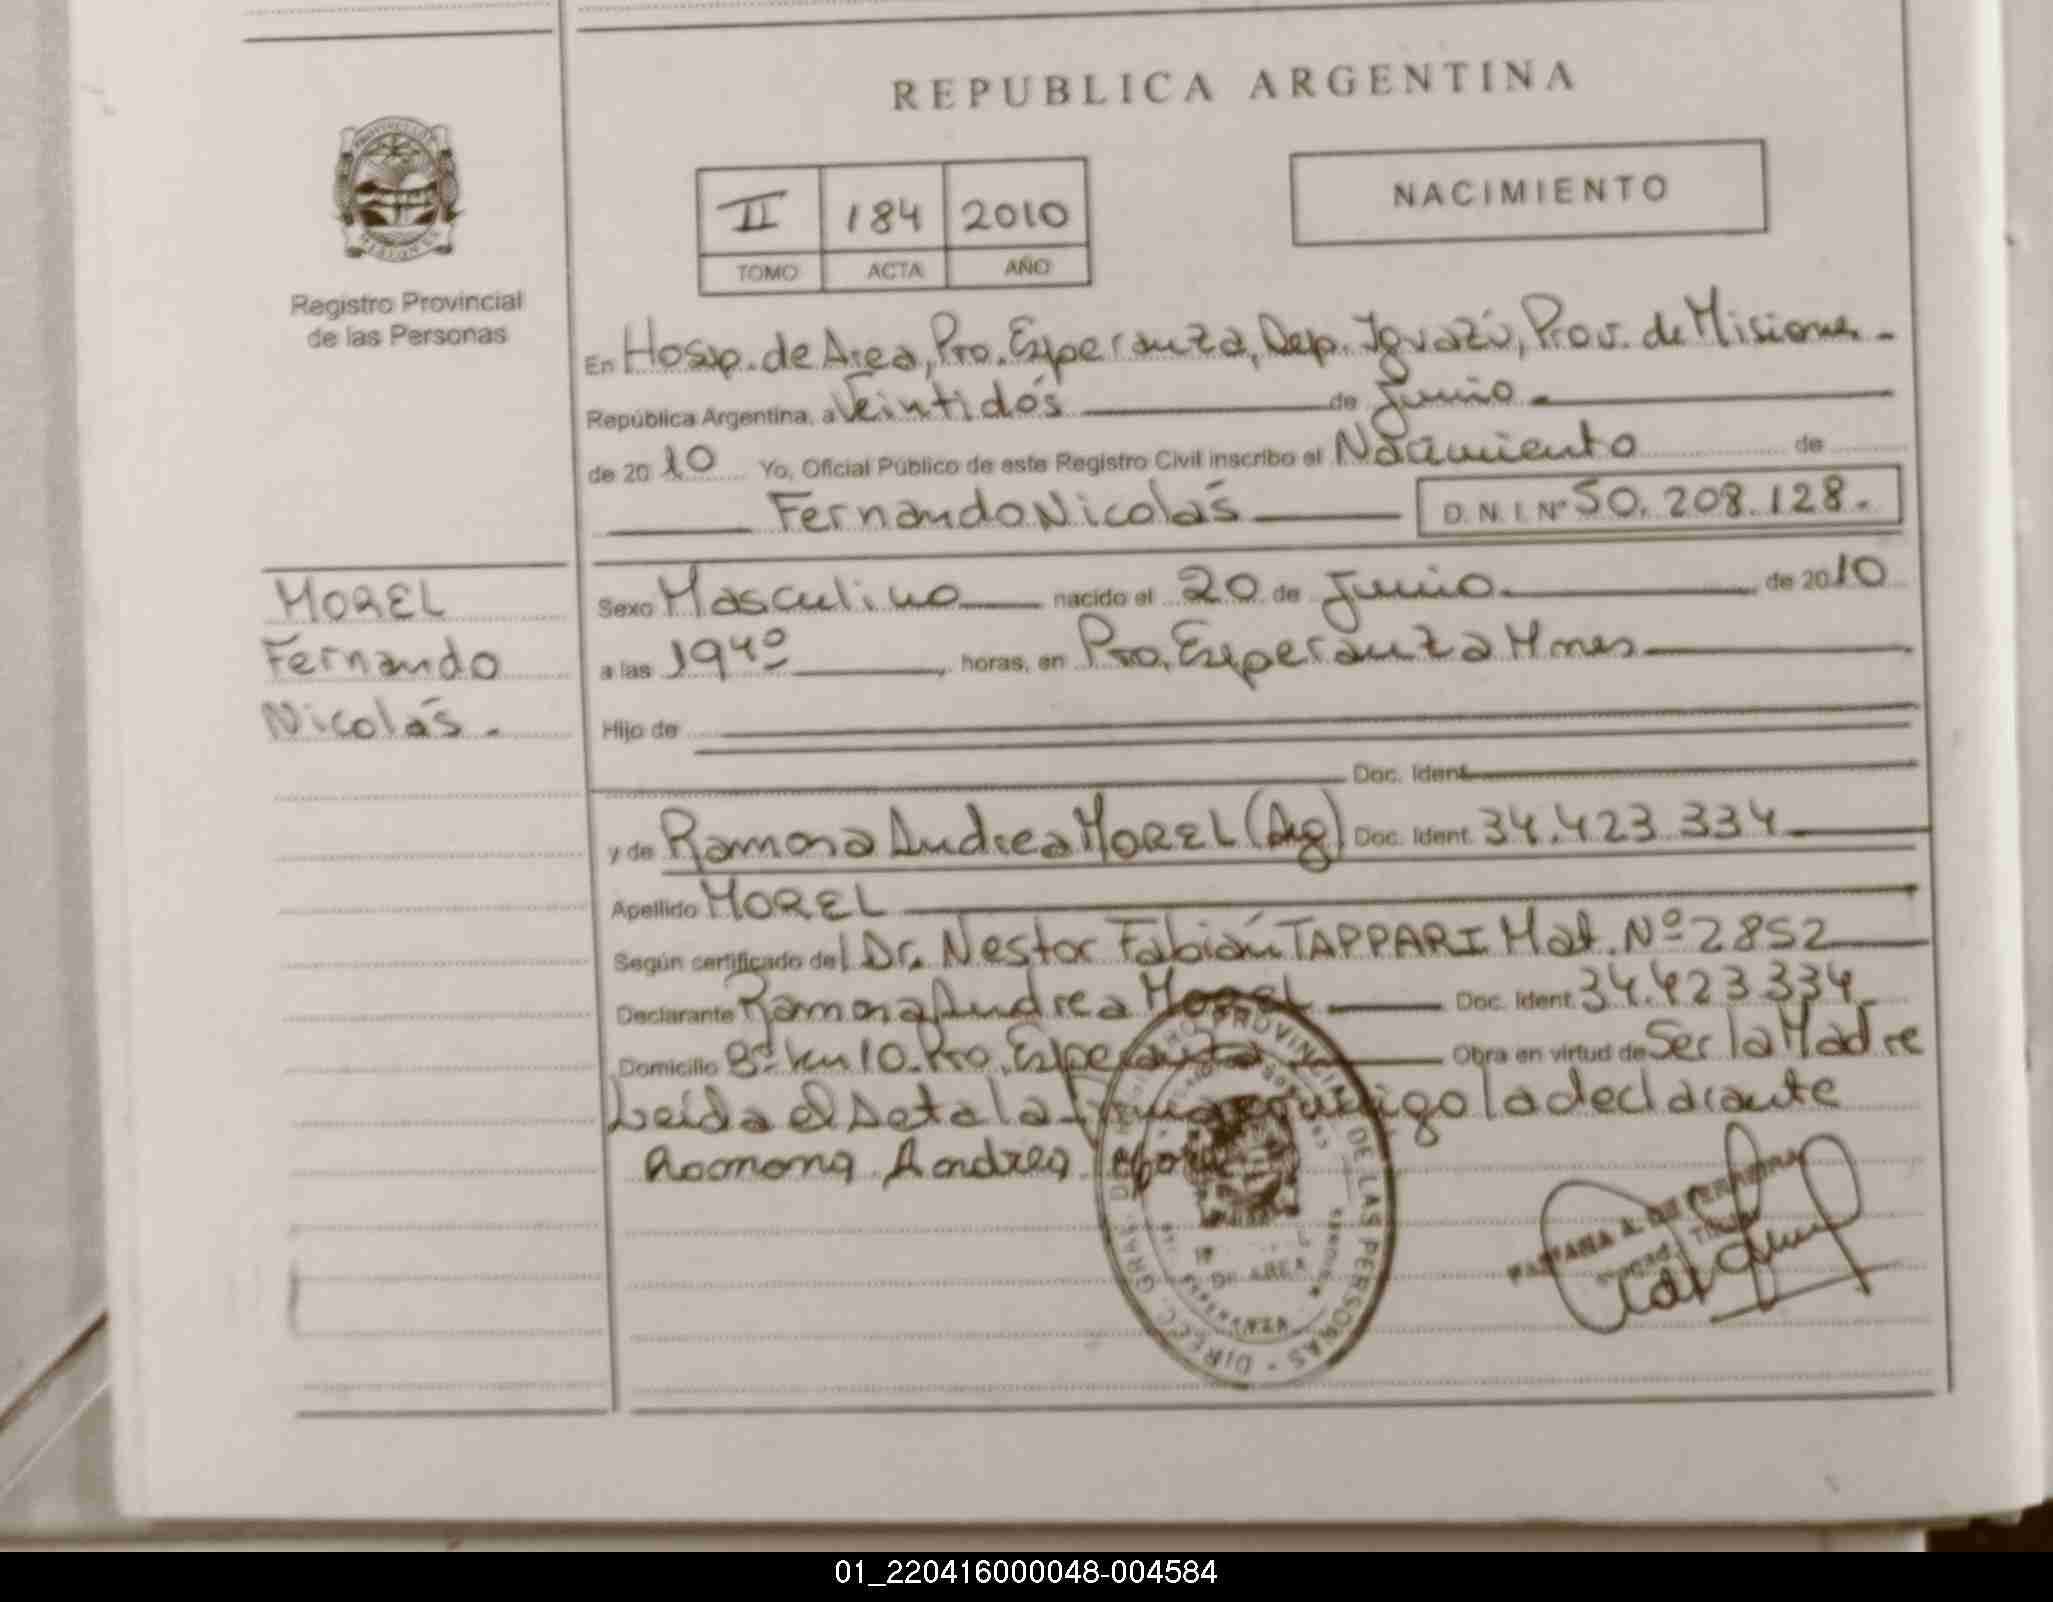 REPUBLICA ARGENTINA
II 184 2010
TOMO ACTA AÑO
NACIMIENTO
Registro Provincial
de las Personas
En Hosp. de Area, Pto. Esperanza, Dep. Iguazú, Prov. de Misiones.-
República Argentina, a Veintidós de Junio
de 2010 Yo, Oficial Público de este Registro Civil inscribo el Nacimiento de
Fernando Nicolás D.N.I. Nº 50.208.128.
MOREL
Fernando
Nicolás.
Sexo Masculino nacido el 20 de Junio de 2010
a las 19⁴⁰ horas, en Pto. Esperanza Mnes
Hijo de
Doc. Ident.
y de Ramona Andrea MOREL (Arg) Doc. Ident. 34.423.334
Apellido MOREL
Según certificado del Dr. Nestor Fabián TAPPARI Mat. Nº 2852
Declarante Ramona Andrea Morel Doc. Ident. 34.423.334
Domicilio Bº km 10. Pto. Esperanza Obra en virtud de Ser la Madre
Leída el Acta la firma conmigo la declarante
Ramona Andrea
PROVINCIAL DE LAS PERSONAS
DE AREA
DIRECC. GRAL.
01_220416000048-004584